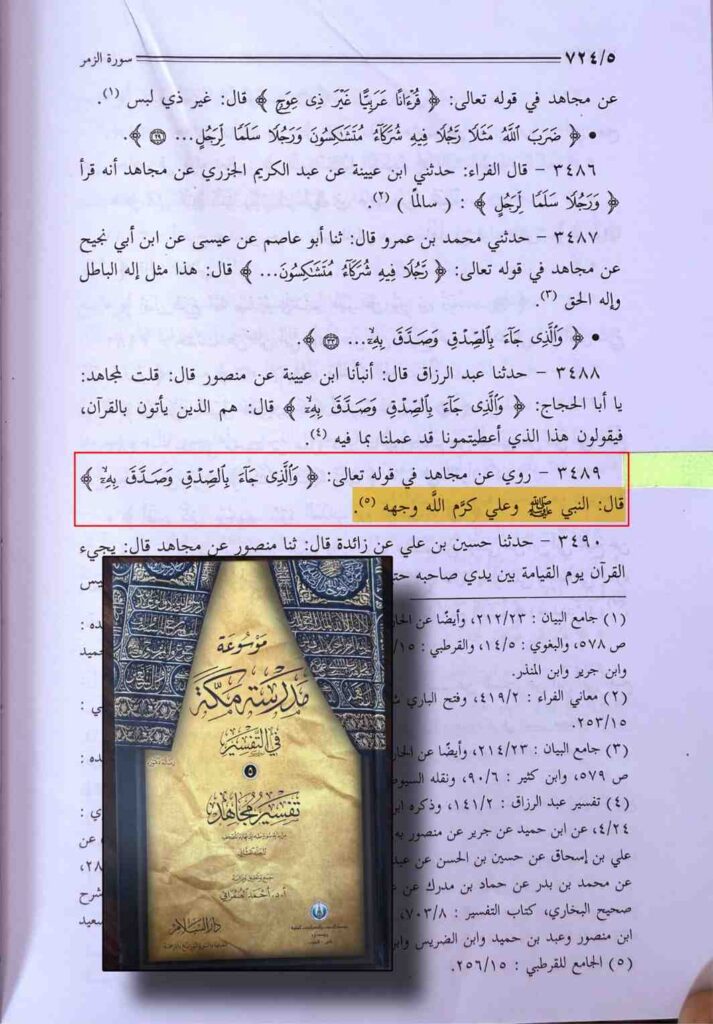 ٧٢٤/٥ سورة الزمر
عن مجاهد في قوله تعالى: ﴿ قُرْءَانًا عَرَبِيًّا غَيْرَ ذِى عِوَجٍ ﴾ قال: غير ذي لبس (١).
• ﴿ ضَرَبَ ٱللَّهُ مَثَلًا رَّجُلًا فِيهِ شُرَكَآءُ مُتَشَٰكِسُونَ وَرَجُلًا سَلَمًا لِّرَجُلٍ... ٢٩ ﴾.
٣٤٨٦ - قال الفراء: حدثني ابن عيينة عن عبد الكريم الجزري عن مجاهد أنه قرأ
﴿ وَرَجُلًا سَلَمًا لِّرَجُلٍ ﴾ : ( سالمًا ) (٢).
٣٤٨٧ - حدثني محمد بن عمرو قال: ثنا أبو عاصم عن عيسى عن ابن أبي نجيح
عن مجاهد في قوله تعالى: ﴿ رَّجُلًا فِيهِ شُرَكَآءُ مُتَشَٰكِسُونَ... ﴾ قال: هذا مثل إله الباطل
وإله الحق (٣).
• ﴿ وَٱلَّذِى جَآءَ بِٱلصِّدْقِ وَصَدَّقَ بِهِۦٓ... ٣٣ ﴾.
٣٤٨٨ - حدثنا عبد الرزاق قال: أنبأنا ابن عيينة عن منصور قال: قلت لمجاهد:
يا أبا الحجاج: ﴿ وَٱلَّذِى جَآءَ بِٱلصِّدْقِ وَصَدَّقَ بِهِۦٓ ﴾ قال: هم الذين يأتون بالقرآن،
فيقولون هذا الذي أعطيتمونا قد عملنا بما فيه (٤).
٣٤٨٩ - روي عن مجاهد في قوله تعالى: ﴿ وَٱلَّذِى جَآءَ بِٱلصِّدْقِ وَصَدَّقَ بِهِۦٓ ﴾
قال: النبي ﷺ وعلي كرَّم اللَّه وجهه (٥).
٣٤٩٠ - حدثنا حسين بن علي عن زائدة قال: ثنا منصور عن مجاهد قال: يجيء
القرآن يوم القيامة بين يدي صاحبه
(١) جامع البيان : ٢١٢/٢٣، وأيضًا عن
ص ٥٧٨، والبغوي : ١٤/٥، والقرطبي :
وابن جرير وابن المنذر.
(٢) معاني الفراء : ٤١٩/٢، وفتح الباري
٢٥٣/١٥.
(٣) جامع البيان : ٢١٤/٢٣، وأيضًا عن
ص ٥٧٩، وابن كثير : ٩٠/٦، ونقله
(٤) تفسير عبد الرزاق : ١٤١/٢، وذكره
٤/٢٤، عن ابن حميد عن جرير عن منصور به
علي بن إسحاق عن حسين بن الحسن عن
عن محمد بن بدر عن حماد بن مدرك عن
صحيح البخاري، كتاب التفسير : ٧٠٣/٨،
ابن منصور وعبد بن حميد وابن الضريس
(٥) الجامع للقرطبي : ٢٥٦/١٥.
مَوْسُوعَة
مَدْرَسَة مَكَّة
فِي التَّفْسِيْرِ
٥
تَفْسِيْرُ مُجَاهِد
جمع وتحقيق ودراسة
دار السلام